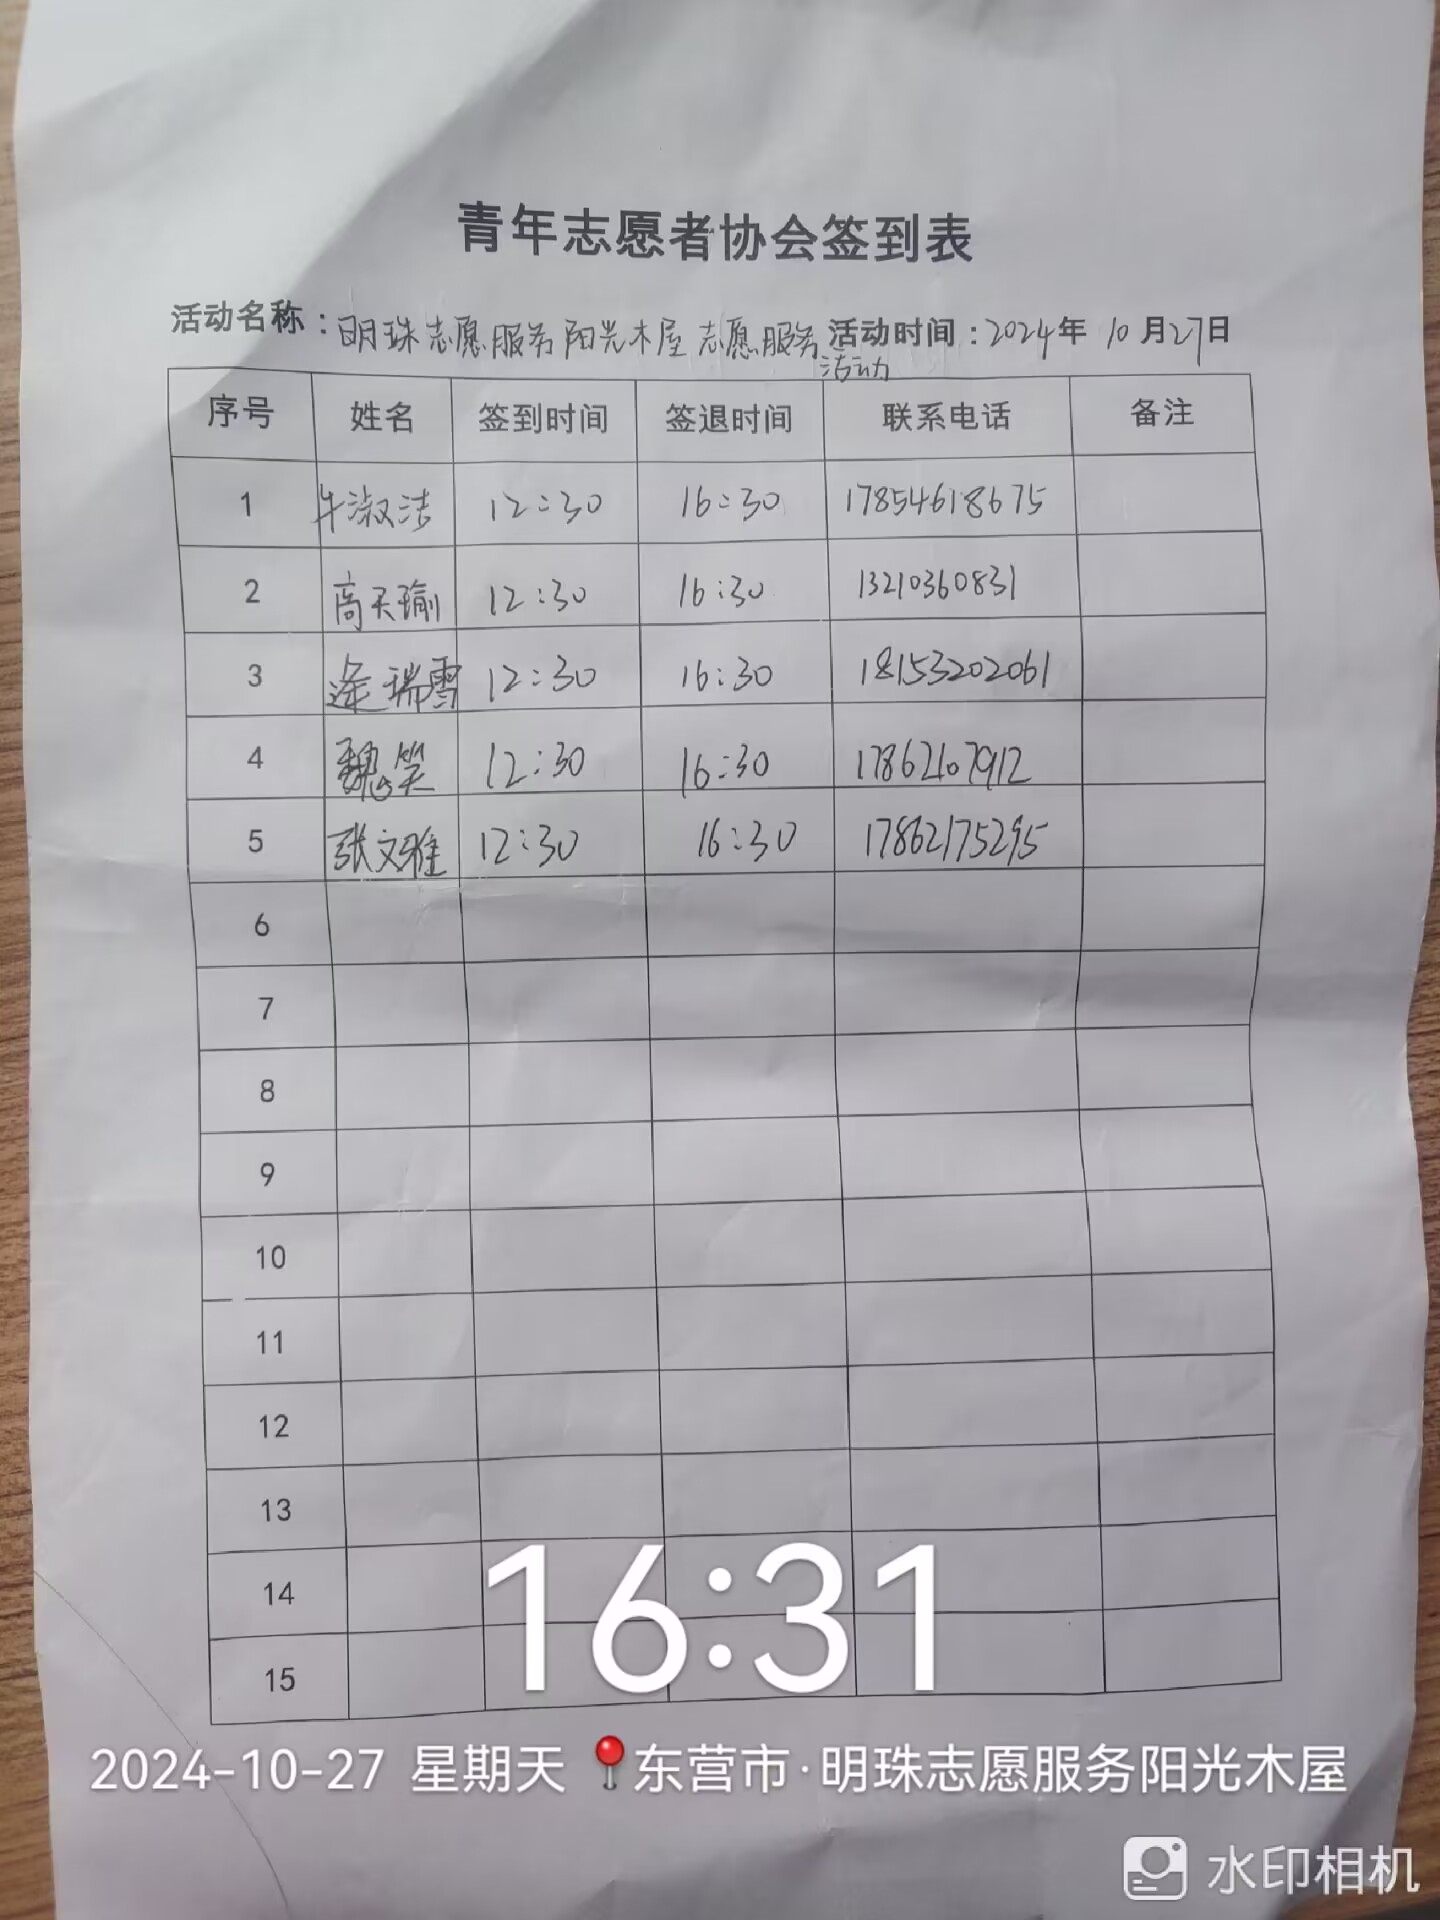 青年志愿者协会签到表
活动名称：明珠志愿服务阳光木屋志愿服务活动 活动时间：2024年10月27日
序号 姓名 签到时间 签退时间 联系电话 备注
1 牛淑洁 12:30 16:30 17854618675
2 高天瑜 12:30 16:30 13210360831
3 逄瑞雪 12:30 16:30 18153202061
4 魏笑 12:30 16:30 17862107912
5 张文雅 12:30 16:30 17862175295
6
7
8
9
10
11
12
13
14
15
16:31
2024-10-27 星期天 东营市·明珠志愿服务阳光木屋
水印相机